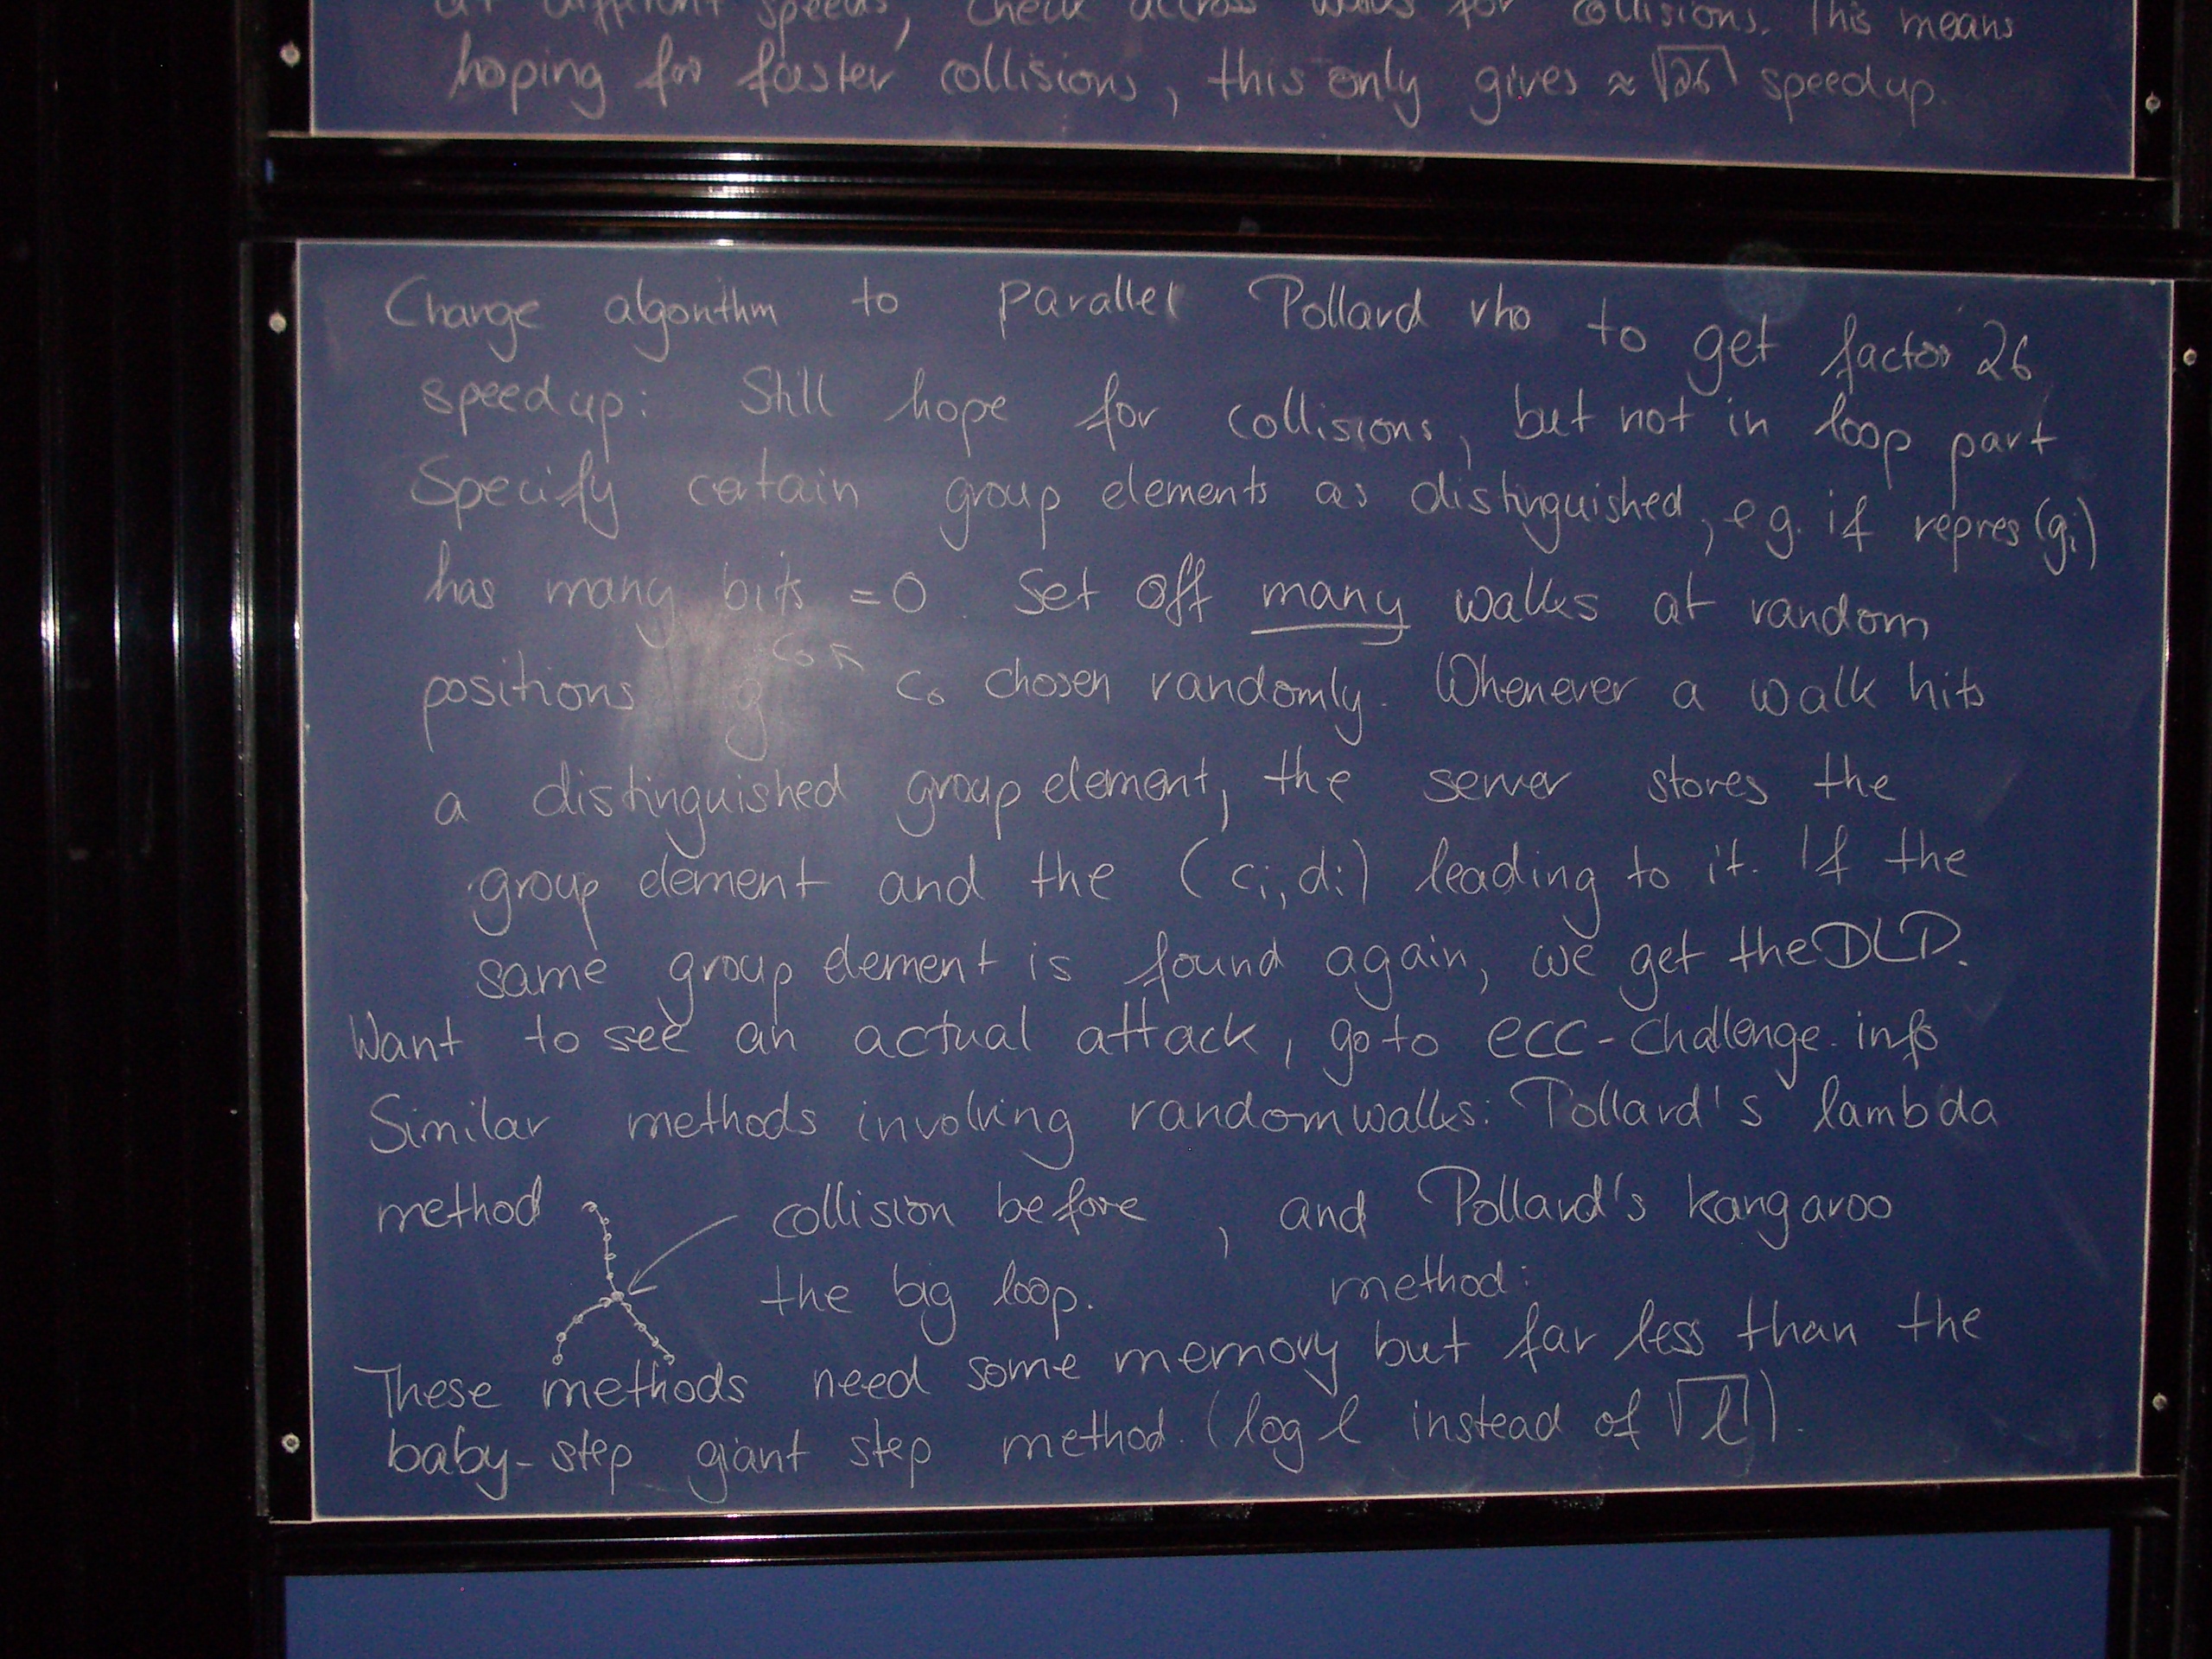 at different speeds, check accross walks for collisions. This means
hoping for faster collisions, this only gives ≈ √26 speedup.
Change algorithm to parallel Pollard rho to get factor 26
speedup: Still hope for collisions, but not in loop part
Specify catain group elements as distinguished, e.g. if repres(gᵢ)
has many bits = 0. Set off many walks at random
positions g^c₀ c₀ chosen randomly. Whenever a walk hits
a distinguished group element, the server stores the
group element and the (cᵢ, dᵢ) leading to it. If the
same group element is found again, we get the DLP.
Want to see an actual attack, go to ecc-challenge.info
Similar methods involving random walks: Pollard's lambda
method collision before , and Pollard's kangaroo
the big loop. method:
These methods need some memory but far less than the
baby-step giant step method. (log l instead of √l).